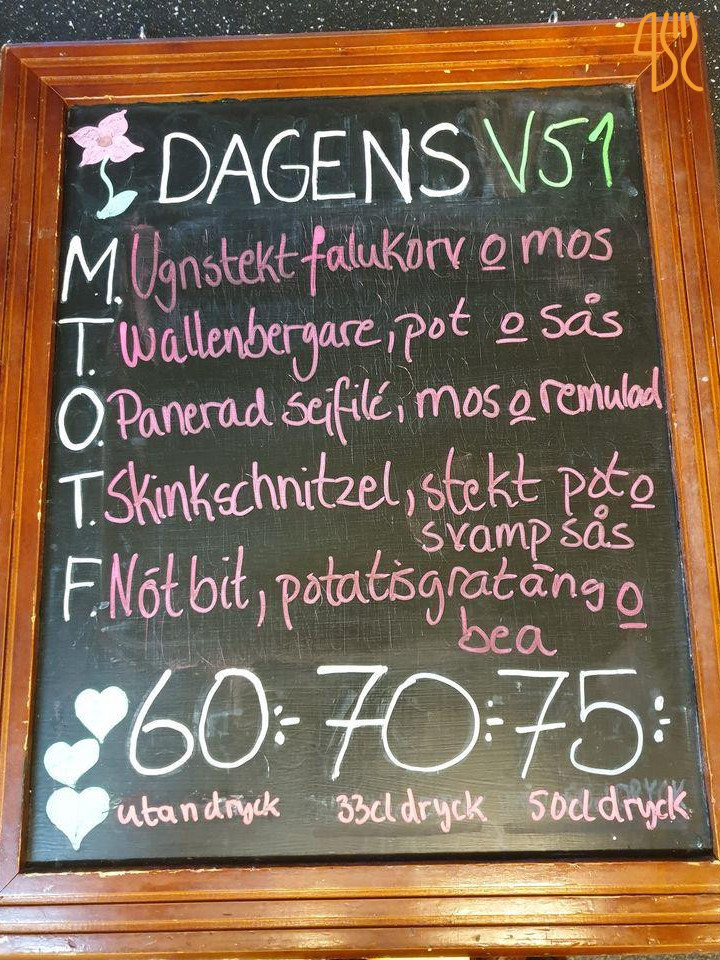 DAGENS V51
M. Ugnstekt falukorv o mos
T. Wallenbergare, pot o sås
O. Panerad sejfilé, mos o remulad
T. Skinkschnitzel, stekt pot o
svampsås
F. Nötbit, potatisgratäng o
bea
60:- 70:- 75:-
utan dryck 33cl dryck 50cl dryck